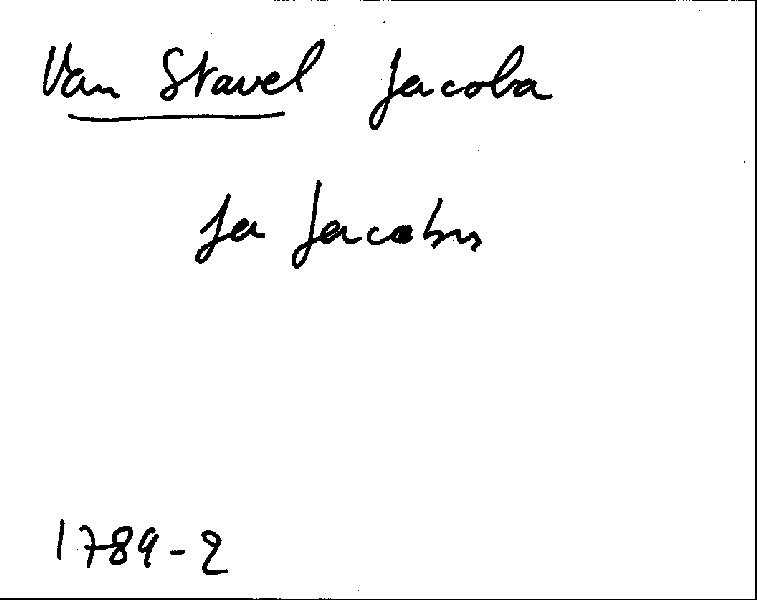 Van Stavel Jacoba
fa Jacobus
1789-2